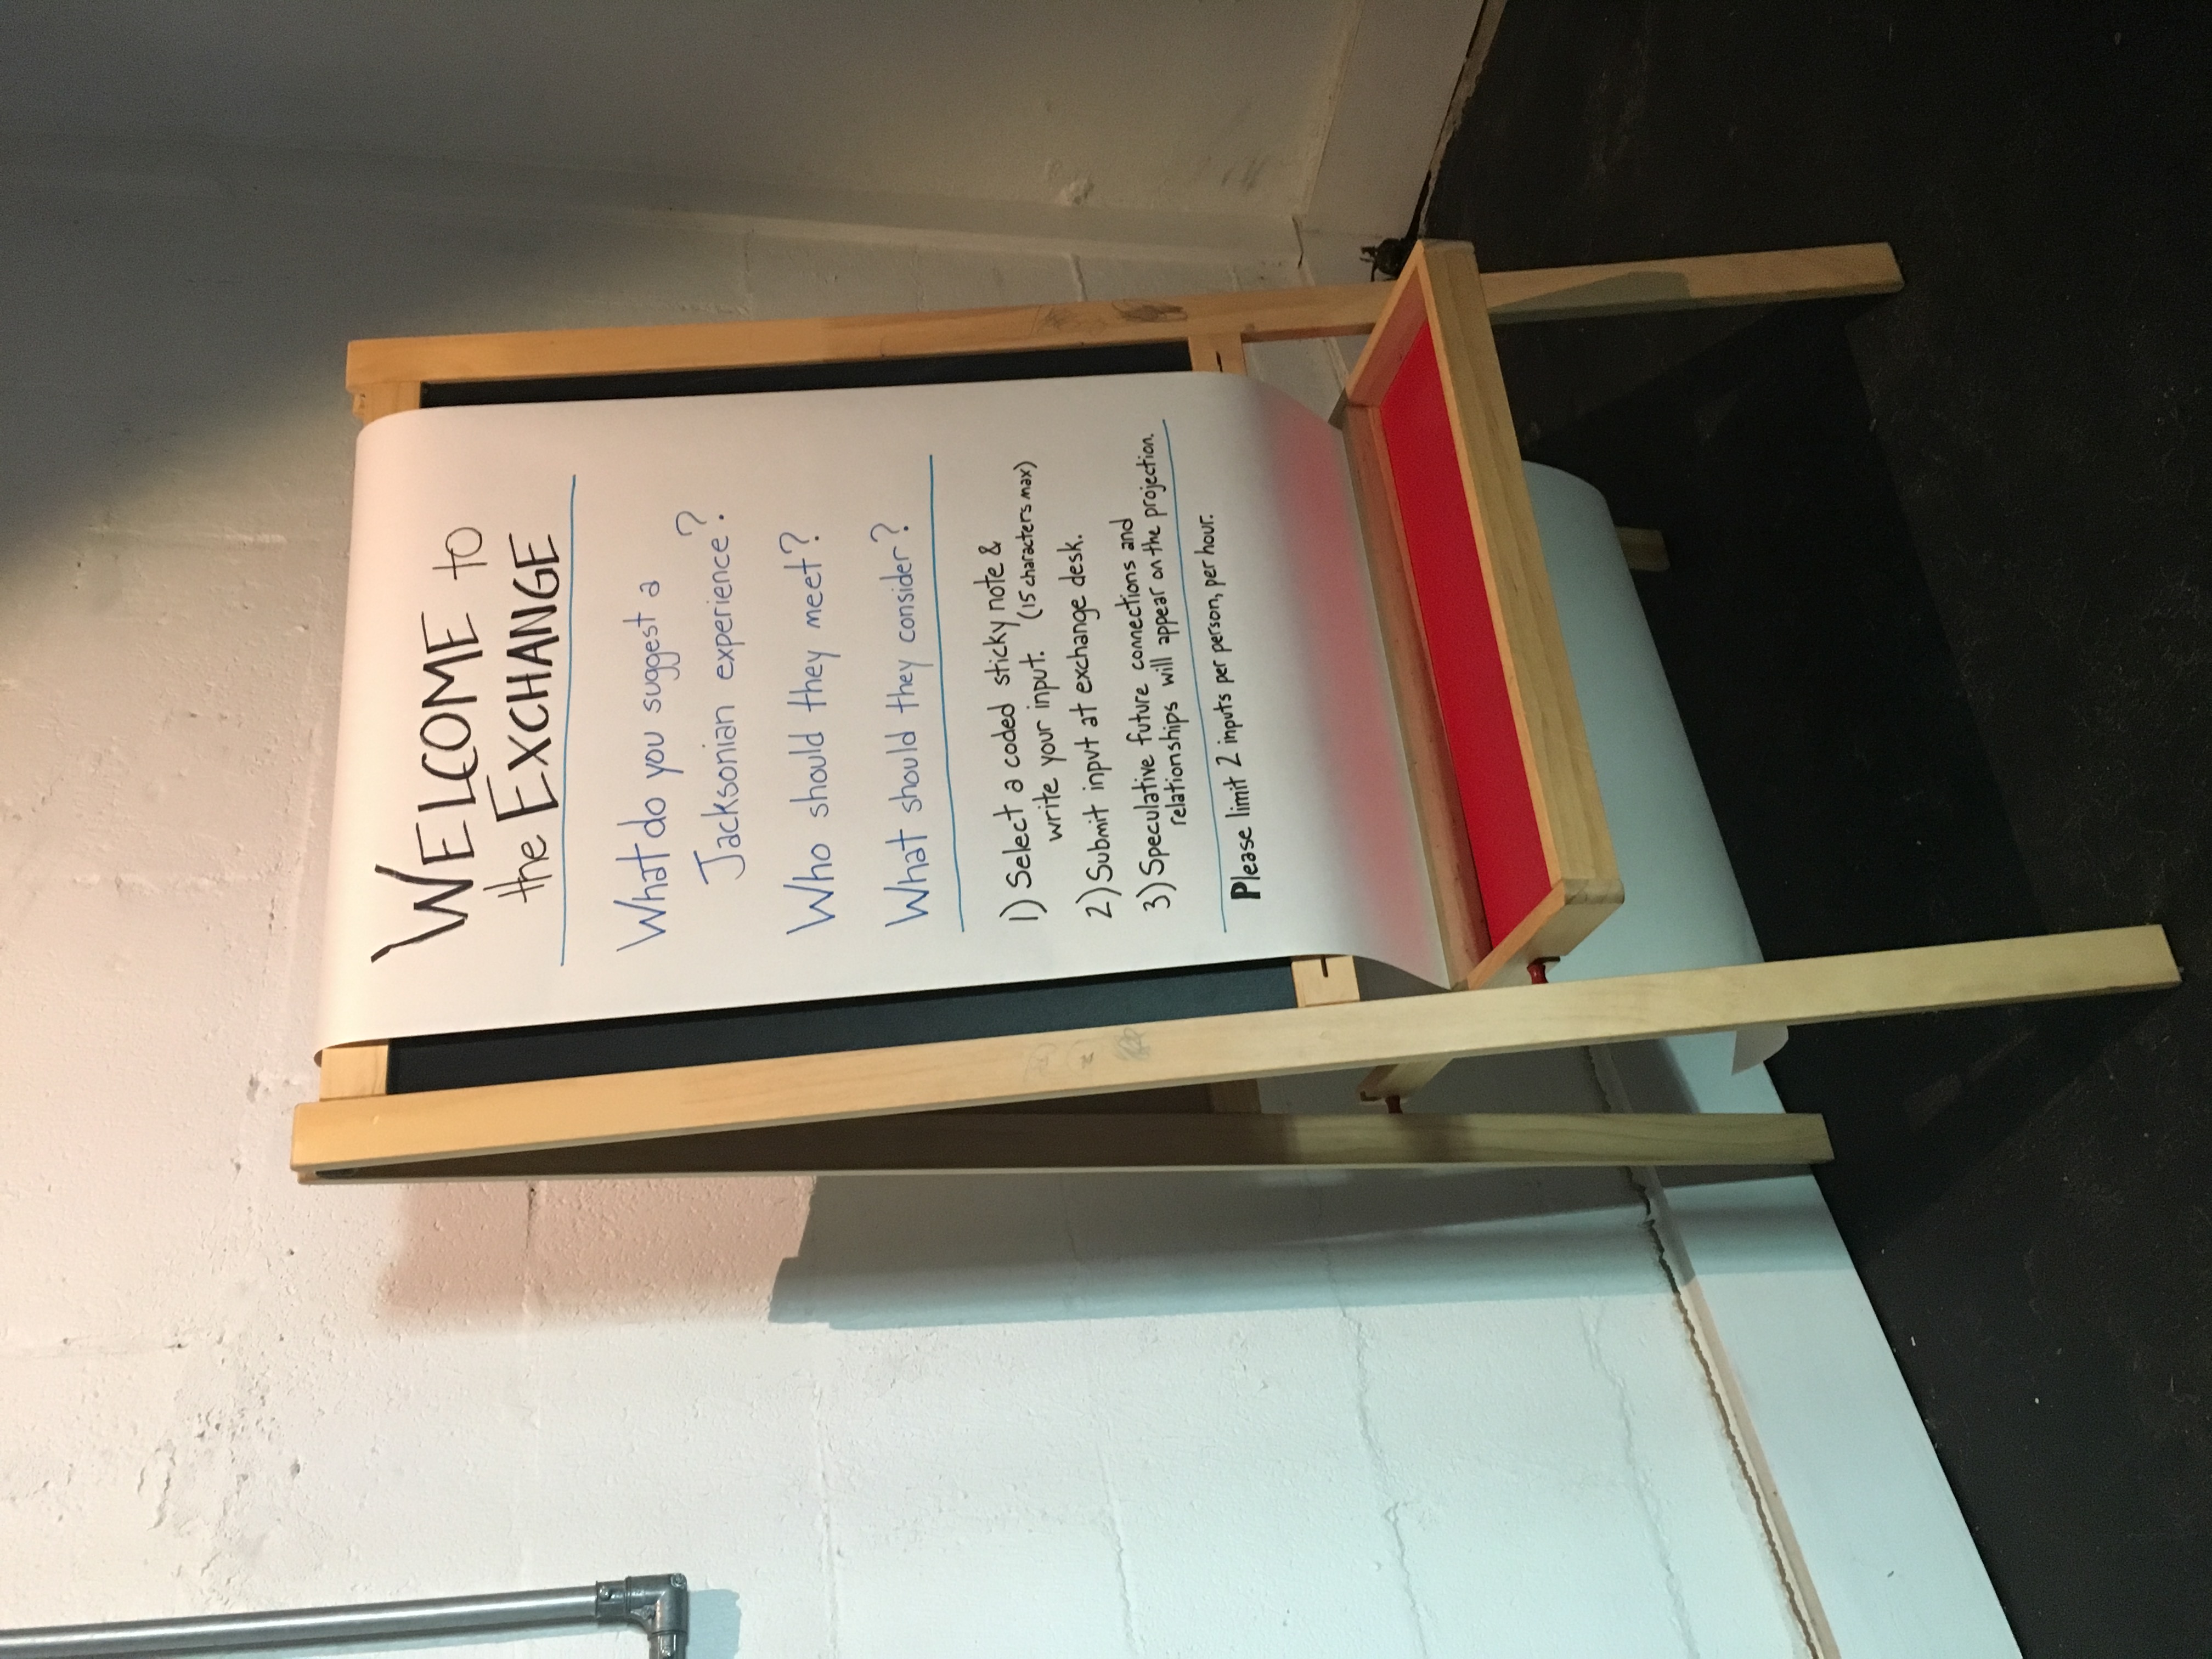 WELCOME to
the EXCHANGE
What do you suggest a
Jacksonian experience?
Who should they meet?
What should they consider?
1) Select a coded sticky note &
write your input. (15 characters max)
2) Submit input at exchange desk.
3) Speculative future connections and
relationships will appear on the projection.
Please limit 2 inputs per person, per hour.